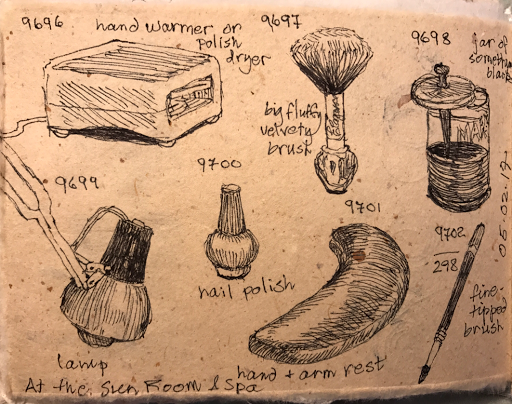 9696
hand warmer or
polish
dryer
9697
big fluffy
velvety
brush
9698
jar of
something
black
9699
lamp
9700
nail polish
9701
hand + arm rest
9702
298
fine-
tipped
brush
05.02.17
At the Sun Room & Spa